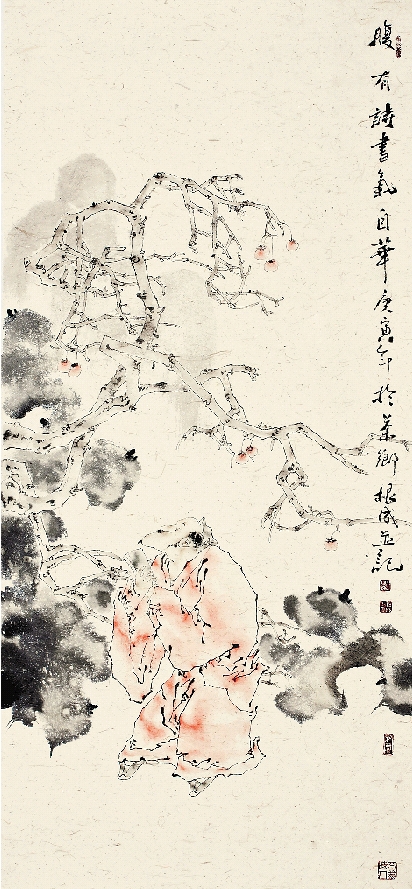 腹有詩書氣自華庚寅年於萊鄉根成並記